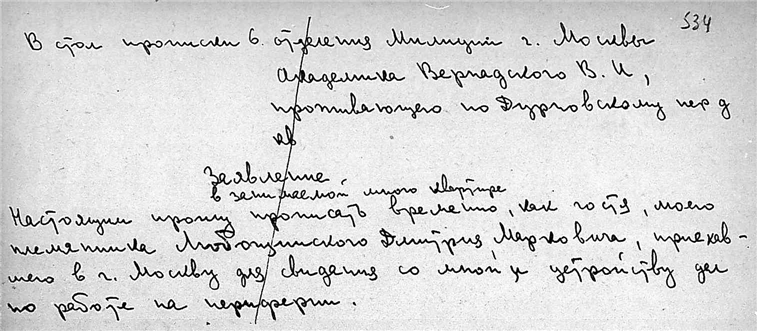 534
В стол прописки 6. отделения Милиции г. Москвы
Академика Вернадского В. И,
проживающего по Дурновскому пер д
кв
Заявление
в занимаемой мною квартире
Настоящим прошу прописать временно, как гостя, моего
племянника Любощинского Дмитрия Марковича, приехав-
шего в г. Москву для свидения со мной и устройству дел
по работе на периферии.